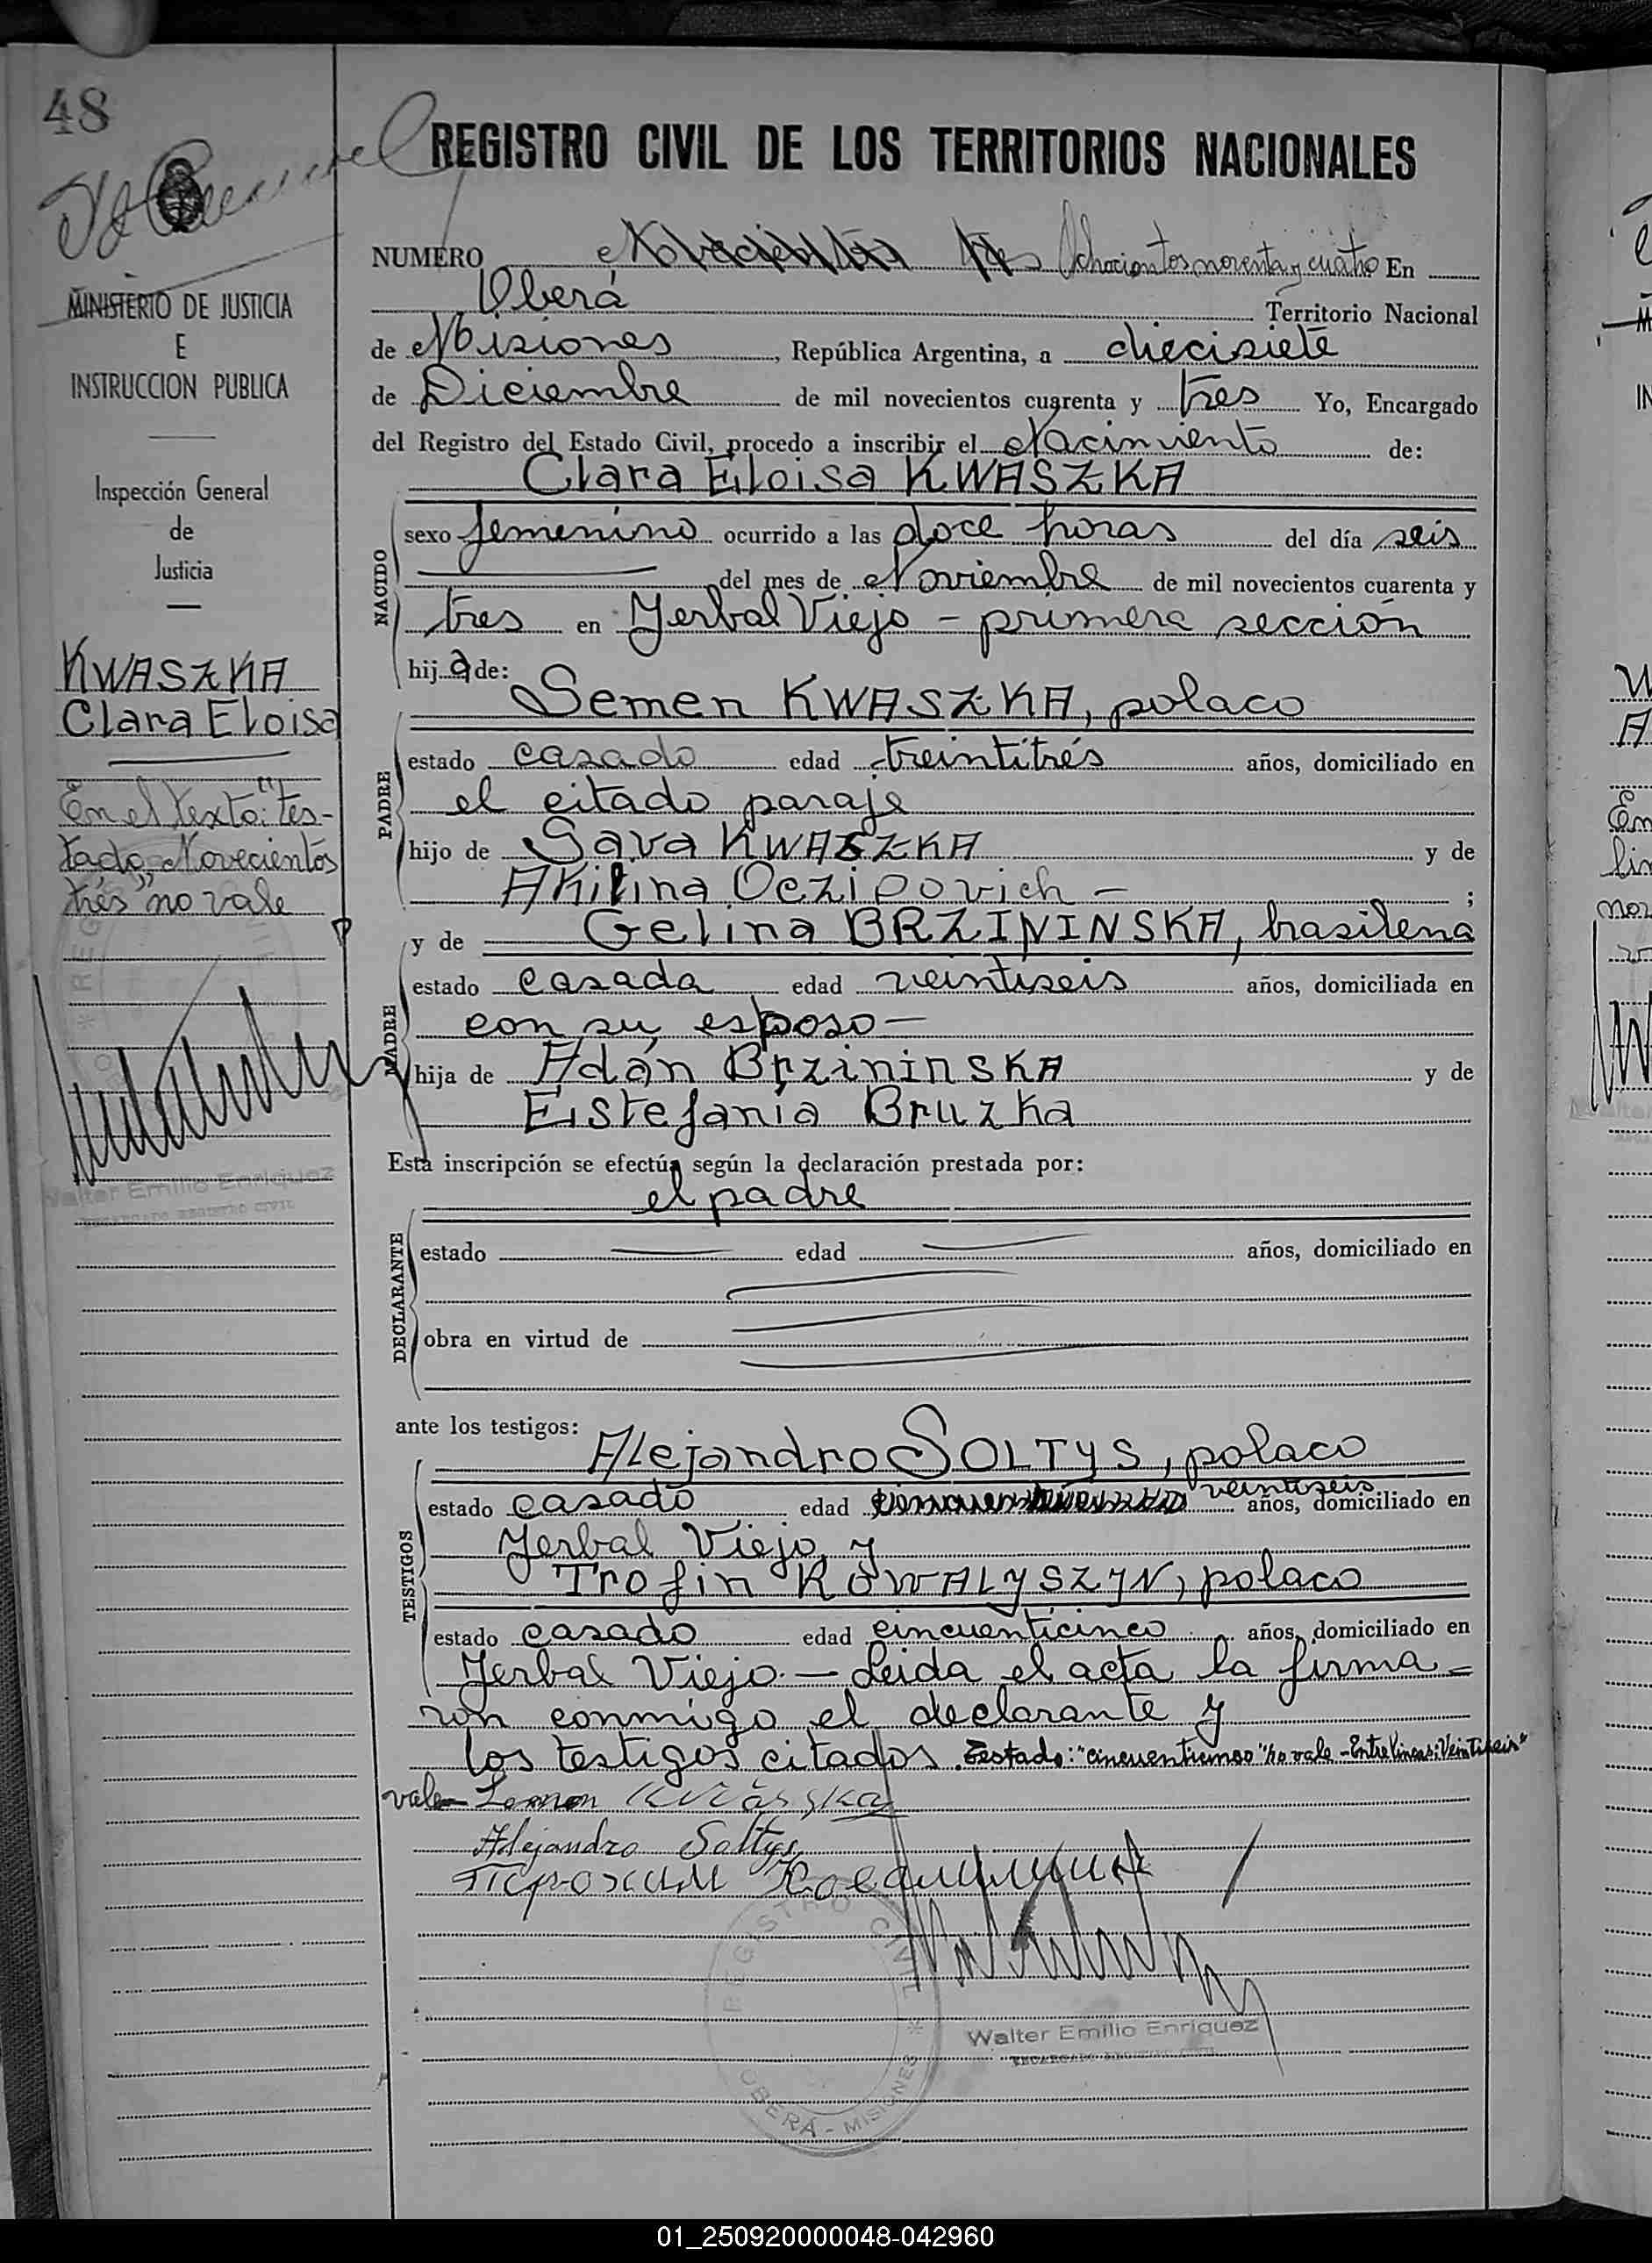 48
REGISTRO CIVIL DE LOS TERRITORIOS NACIONALES
NUMERO Novecientos tres Ochocientos noventa y cuatro En
Oberá Territorio Nacional
de Misiones, República Argentina, a diecisiete
de Diciembre de mil novecientos cuarenta y tres Yo, Encargado
del Registro del Estado Civil, procedo a inscribir el Nacimiento de:
Clara Eloisa KWASZKA
NACIDO
sexo femenino ocurrido a las doce horas del día seis
del mes de Noviembre de mil novecientos cuarenta y
tres en Yerbal Viejo - primera sección
hija de:
Semen KWASZKA, polaco
PADRE
estado casado edad treintitrés años, domiciliado en
el citado paraje
hijo de Sava KWASZKA y de
Akilina Oczipovich - ;
y de Gelina BRZININSKA, brasilena
MADRE
estado casada edad veintiseis años, domiciliada en
con su esposo -
hija de Adán BrzininskA y de
Estefania Bruzka
Esta inscripción se efectúa según la declaración prestada por:
el padre
DECLARANTE
estado edad años, domiciliado en
obra en virtud de
ante los testigos:
Alejandro SOLTYS, polaco
TESTIGOS
estado casado edad veintiseis años, domiciliado en
Yerbal Viejo y
Trofin KOWALYSZYN, polaco
estado casado edad cincuenticinco años, domiciliado en
Yerbal Viejo. - Leida el acta la firma=
ron conmigo el declarante y
los testigos citados. Testado: "cincuentiunoo" no vale - Entre lineas: Veintiseis"
vale
Alejandro Soltys
REGISTRO CIVIL
OBERÁ - MISIONES
Walter Emilio Enriquez
ENCARGADO REGISTRO CIVIL
MINISTERIO DE JUSTICIA
E
INSTRUCCION PUBLICA
Inspección General
de
Justicia
KWASZKA
Clara Eloisa
En el texto: "tes-
tado Novecientos
trés" no vale
Walter Emilio Enriquez
ENCARGADO REGISTRO CIVIL
01_250920000048-042960